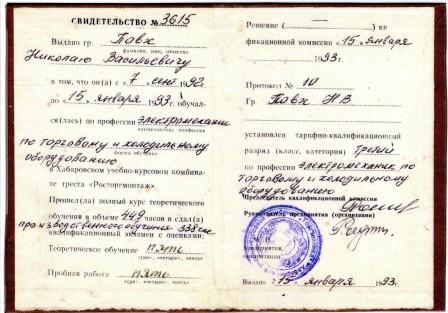 СВИДЕТЕЛЬСТВО № 3615
Выдано гр. Повх
фамилия, имя, отчество
Николаю Васильевичу
в том, что он(а) с «7 сент. 1992
по «15 января 1993 г. обучал-
ся(лась) по профессии электромеханик
наименование профессии
по торговому и холодильному
оборудованию
в Хабаровском учебно-курсовом комбина-
те треста «Росторгмонтаж».
Прошел(ла) полный курс теоретического
обучения в объеме 449 часов и сдал(а)
производственного обучения 338 час
квалификационный экзамен с оценками:
Теоретическое обучение пять
Пробная работа пять
Решение ( ) ква
фикационной комиссии «15 января
1993 г.
Протокол № 10
Гр. Повх Н В
установлен тарифно-квалификационный
разряд (класс, категория) третий
по профессии электромеханик по
торговому и холодильному
оборудованию
Председатель квалификационной комиссии
Руководитель предприятия (организации)
Выдано «15 января 1993 г.